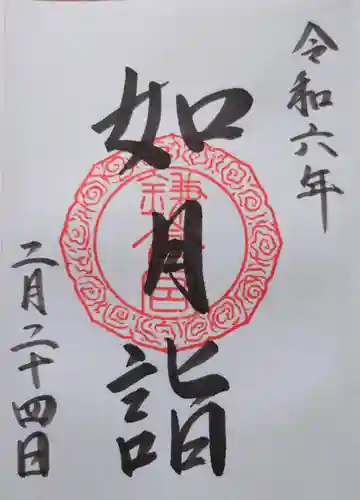 令和六年
如月詣
二月二十四日